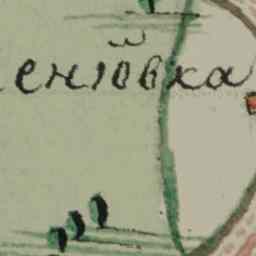 енювка